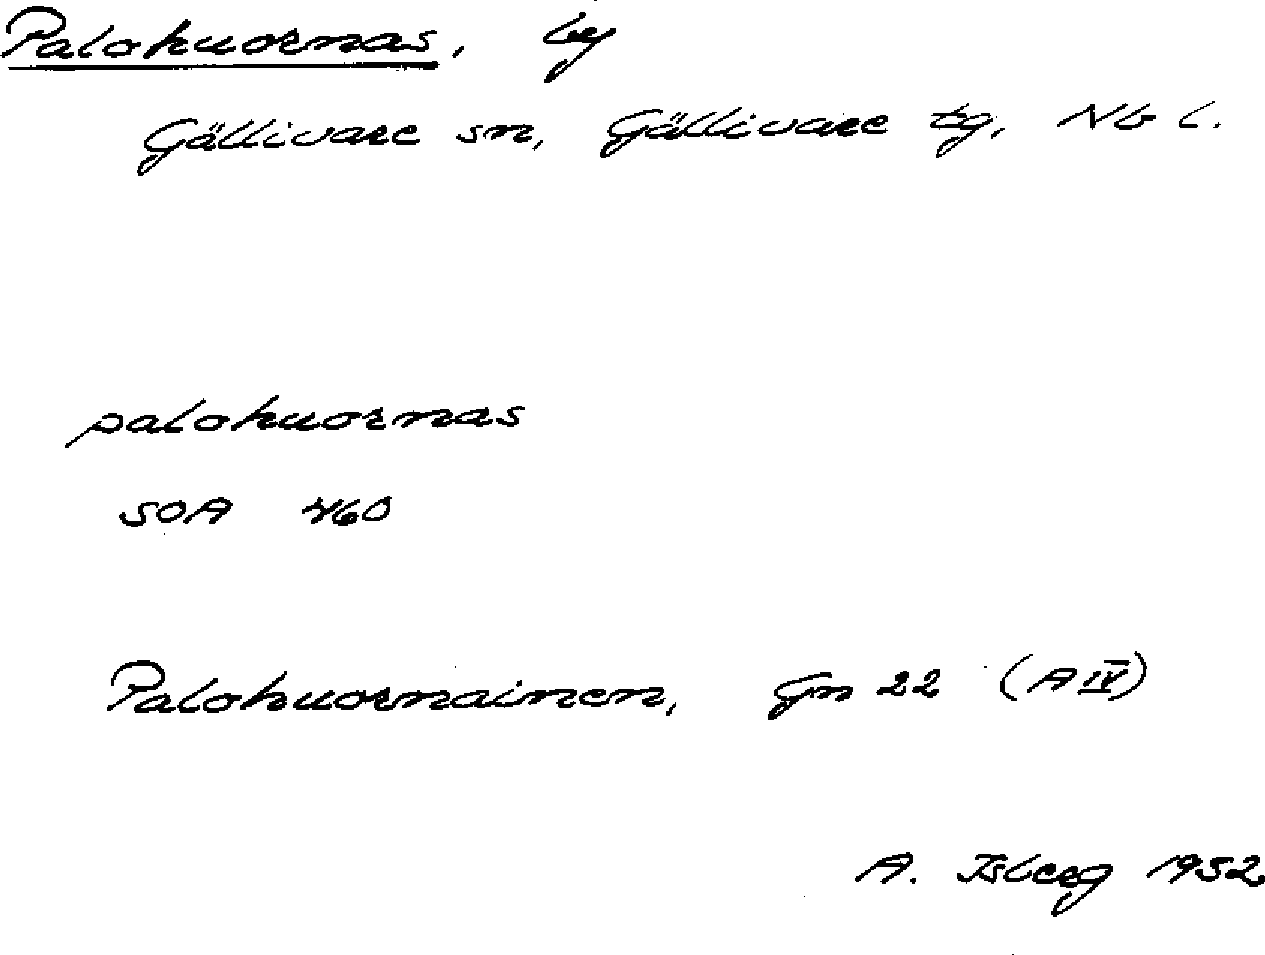 Palohuornas, by
Gällivare sn, Gällivare tg, Nb l.
palohuornas
SOA 460
Palohuornainen, Gn 22 (A IV)
A. Isberg 1952